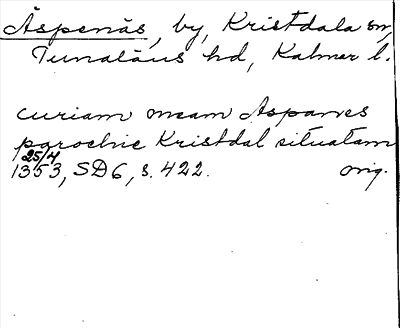 Äspenäs, by, Kristdala sn,
Tunaläns hd, Kalmar l.
curiam meam Aspanes
parochie Kristdal situatam
25/4
1353, SD6, s. 422. orig.